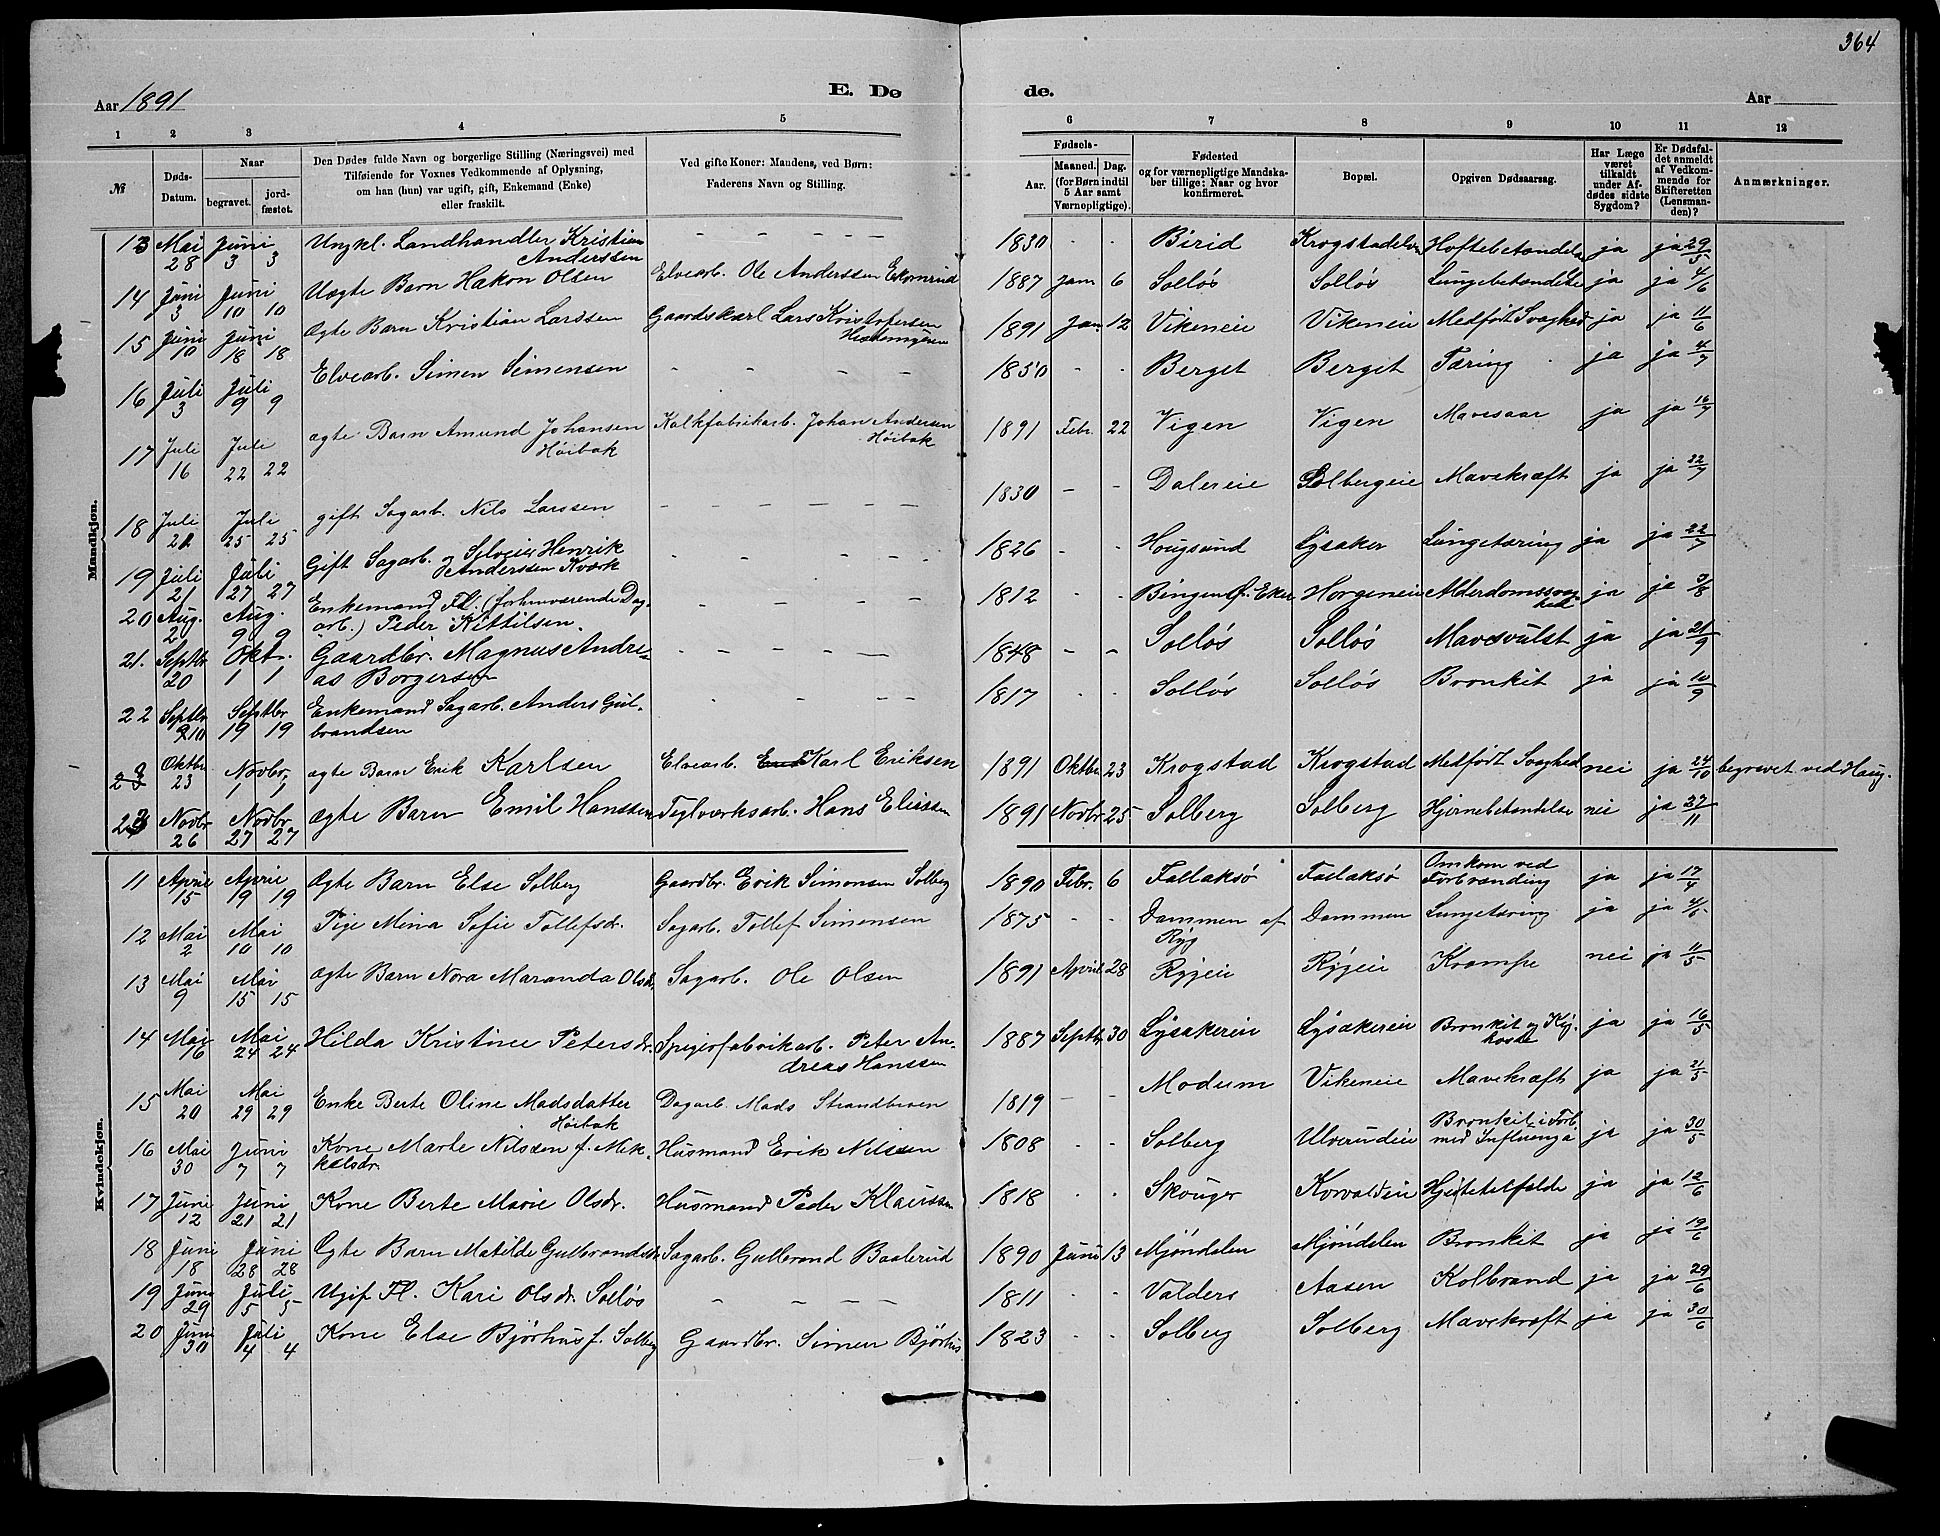 364
Aar 1891
E. Dø
de.
Aar
1 2 3 4 5 6 7 8 9 10 11 12
№
Døds-Datum.
Naar
begravet.
jord-fæstet.
Den Dødes fulde Navn og borgerlige Stilling (Næringsvei) med
Tilføiende for Voxnes Vedkommende af Oplysning,
om han (hun) var ugift, gift, Enkemand (Enke)
eller fraskilt.
Ved gifte Koner: Mandens, ved Børn:
Faderens Navn og Stilling.
Fødsels-
Aar.
Maaned. Dag.
(for Børn indtil
5 Aar samt
Værnepligtige).
Fødested
og for værnepligtige Mandska-
ber tillige: Naar og hvor
konfirmeret.
Bopæl.
Opgiven Dødsaarsag.
Har Læge
været
tilkaldt
under Af-
dødes sidste
Sygdom?
Er Dødsfal-
det anmeldt
af Vedkom-
mende for
Skifteretten
(Lensman-
den)?
Anmærkninger.
Mandkjøn.
13 Mai 28 Juni 3 3 Ungkl. Landhandler Kristian Anderssen - - - - - 1830 - - Birid Hoftebetændelse ja ja 29/5
14 Juni 3 Juni 10 10 Uægte Barn Hakon Olsen Elvearb. Ole Anderssen Ekornrud 1887 Jan 6 Solløs Solløs Lungebetændelse ja ja 4/6
15 Juni 10 Juni 18 18 Ægte Barn Kristian Larssen Gaardskarl Lars Kristofersen 1891 Jan. 12 Vikeneie Vikeneie Medfødt Svaghed ja ja 11/6
16 Juli 3 Juli 9 9 Elvearb. Simen Simensen - - - - 1850 - - Berget Berget Tæring ja ja 4/7
17 Juli 16 Juli 22 22 ægte Barn Amund Johansen Høibak Kalkfabrikarb. Johan Andersen Høibak 1891 Febr. 22 Vigen Vigen Mavesaar ja ja 16/7
18 Juli 21 Juli 25 25 gift Sagarb. Nils Larssen - - - - - 1830 - - Dalereie Solbergeie Mavekræft ja ja 22/7
19 Juli 21 Juli 27 27 Gift Sagarb. og Selveier Henrik Anderssen Kværk - - - - 1826 - - Hougsund Lysaker Lungetæring ja ja 22/7
20 Aug. 2 Aug. 9 9 Enkemand Fl. (forhenværende Dag-
arb.) Peder Kittilsen. - - - - 1812 - - Bingen Ø. Eker Horgeneie Alderdomssvaghed ja ja 3/8
21. Septbr 20 Okt. 1 1 Gaardbr. Magnus Andre-
as Borgersen - - - - - 1848 - - Solløs Solløs Mavesvulst ja ja 21/9
22 Septbr 10 Septbr 19 19 Enkemand Sagarb. Anders Gul-
brandsen - - - - 1817 - - Solløs Solløs Bronkit ja ja 10/9
Oktbr 23 Novbr. 1 1 ægte Barn Erik Karlsen Elvearb. Karl Eriksen 1891 Oktbr. 23 Krogstad Krogstad Medfødt Svaghed nei ja 24/10 begravet ved Haug.
23 Novbr 26 Novbr 27 27 ægte Barn Emil Hanssen Teglværksarb. Hans Elissen 1891 Novbr. 25 Solberg Solberg Hjernebetændelse nei ja 27/11
Kvindekjøn.
11 April 15 April 19 19 Ægte Barn Else Solberg Gaardbr. Erik Simonsen Solberg 1890 Febr. 6 Fallaksø Fallaksø Omkom ved
Forbrænding ja ja 17/4
12 Mai 2 Mai 10 10 Pige Mina Sofie Tollefsdr. Sagarb. Tollef Simensen 1875 - - Dammen af
Ryg Dammen Lungetæring ja ja 4/5
13 Mai 9 Mai 15 15 ægte Barn Nora Maranda Olsdr. Sagarb. Ole Olsen 1891 April 28 Rygeie Rygeie Krampe nei ja 11/5
14 Mai 16 Mai 24 24 Hilda Kristine Petersdr. Spigerfabrikarb. Peter An-
dreas Hanssen 1887 Septbr 30 Lysakereie Lysakereie Bronkit og Kig-
hoste ja ja 16/5
15 Mai 20 Mai 29 29 Enke Berte Oline Madsdatter
Høibak Dagarb. Mads 1819 - - Modum Vikeneie Mavekræft ja ja 21/5
16 Mai 30 Juni 7 7 Kone Marte Nilssen f. Mik-
kelsdr. Husmand Erik Nilssen 1808 - - Solberg Ulverudeie Bronkit i Forb.
med Influenza ja ja 30/5
17 Juni 12 Juni 21 21 Kone Berte Marie Olsdr. Husmand Peder Klaussen 1818 - - Skouger Korvaldeie Hjertefeil ja ja 12/6
18 Juni 18 Juni 28 28 Ægte Barn Matilde Gulbrandsdr. Sagarb. Gulbrand Baalerud 1890 Juni 13 Mjøndalen Mjøndalen Bronkit ja ja 19/6
19 Juni 29 Juli 5 5 Ugif Fl. Kari Olsdr. Solløs - - - - 1811 - - Valders Aasen Kolbrand ja ja 29/6
20 Juni 30 Juli 4 4 Kone Else Bjørhus f. Solberg Gaardbr. Simen Bjørhus 1823 - - Solberg Solberg Mavekræft ja ja 30/6